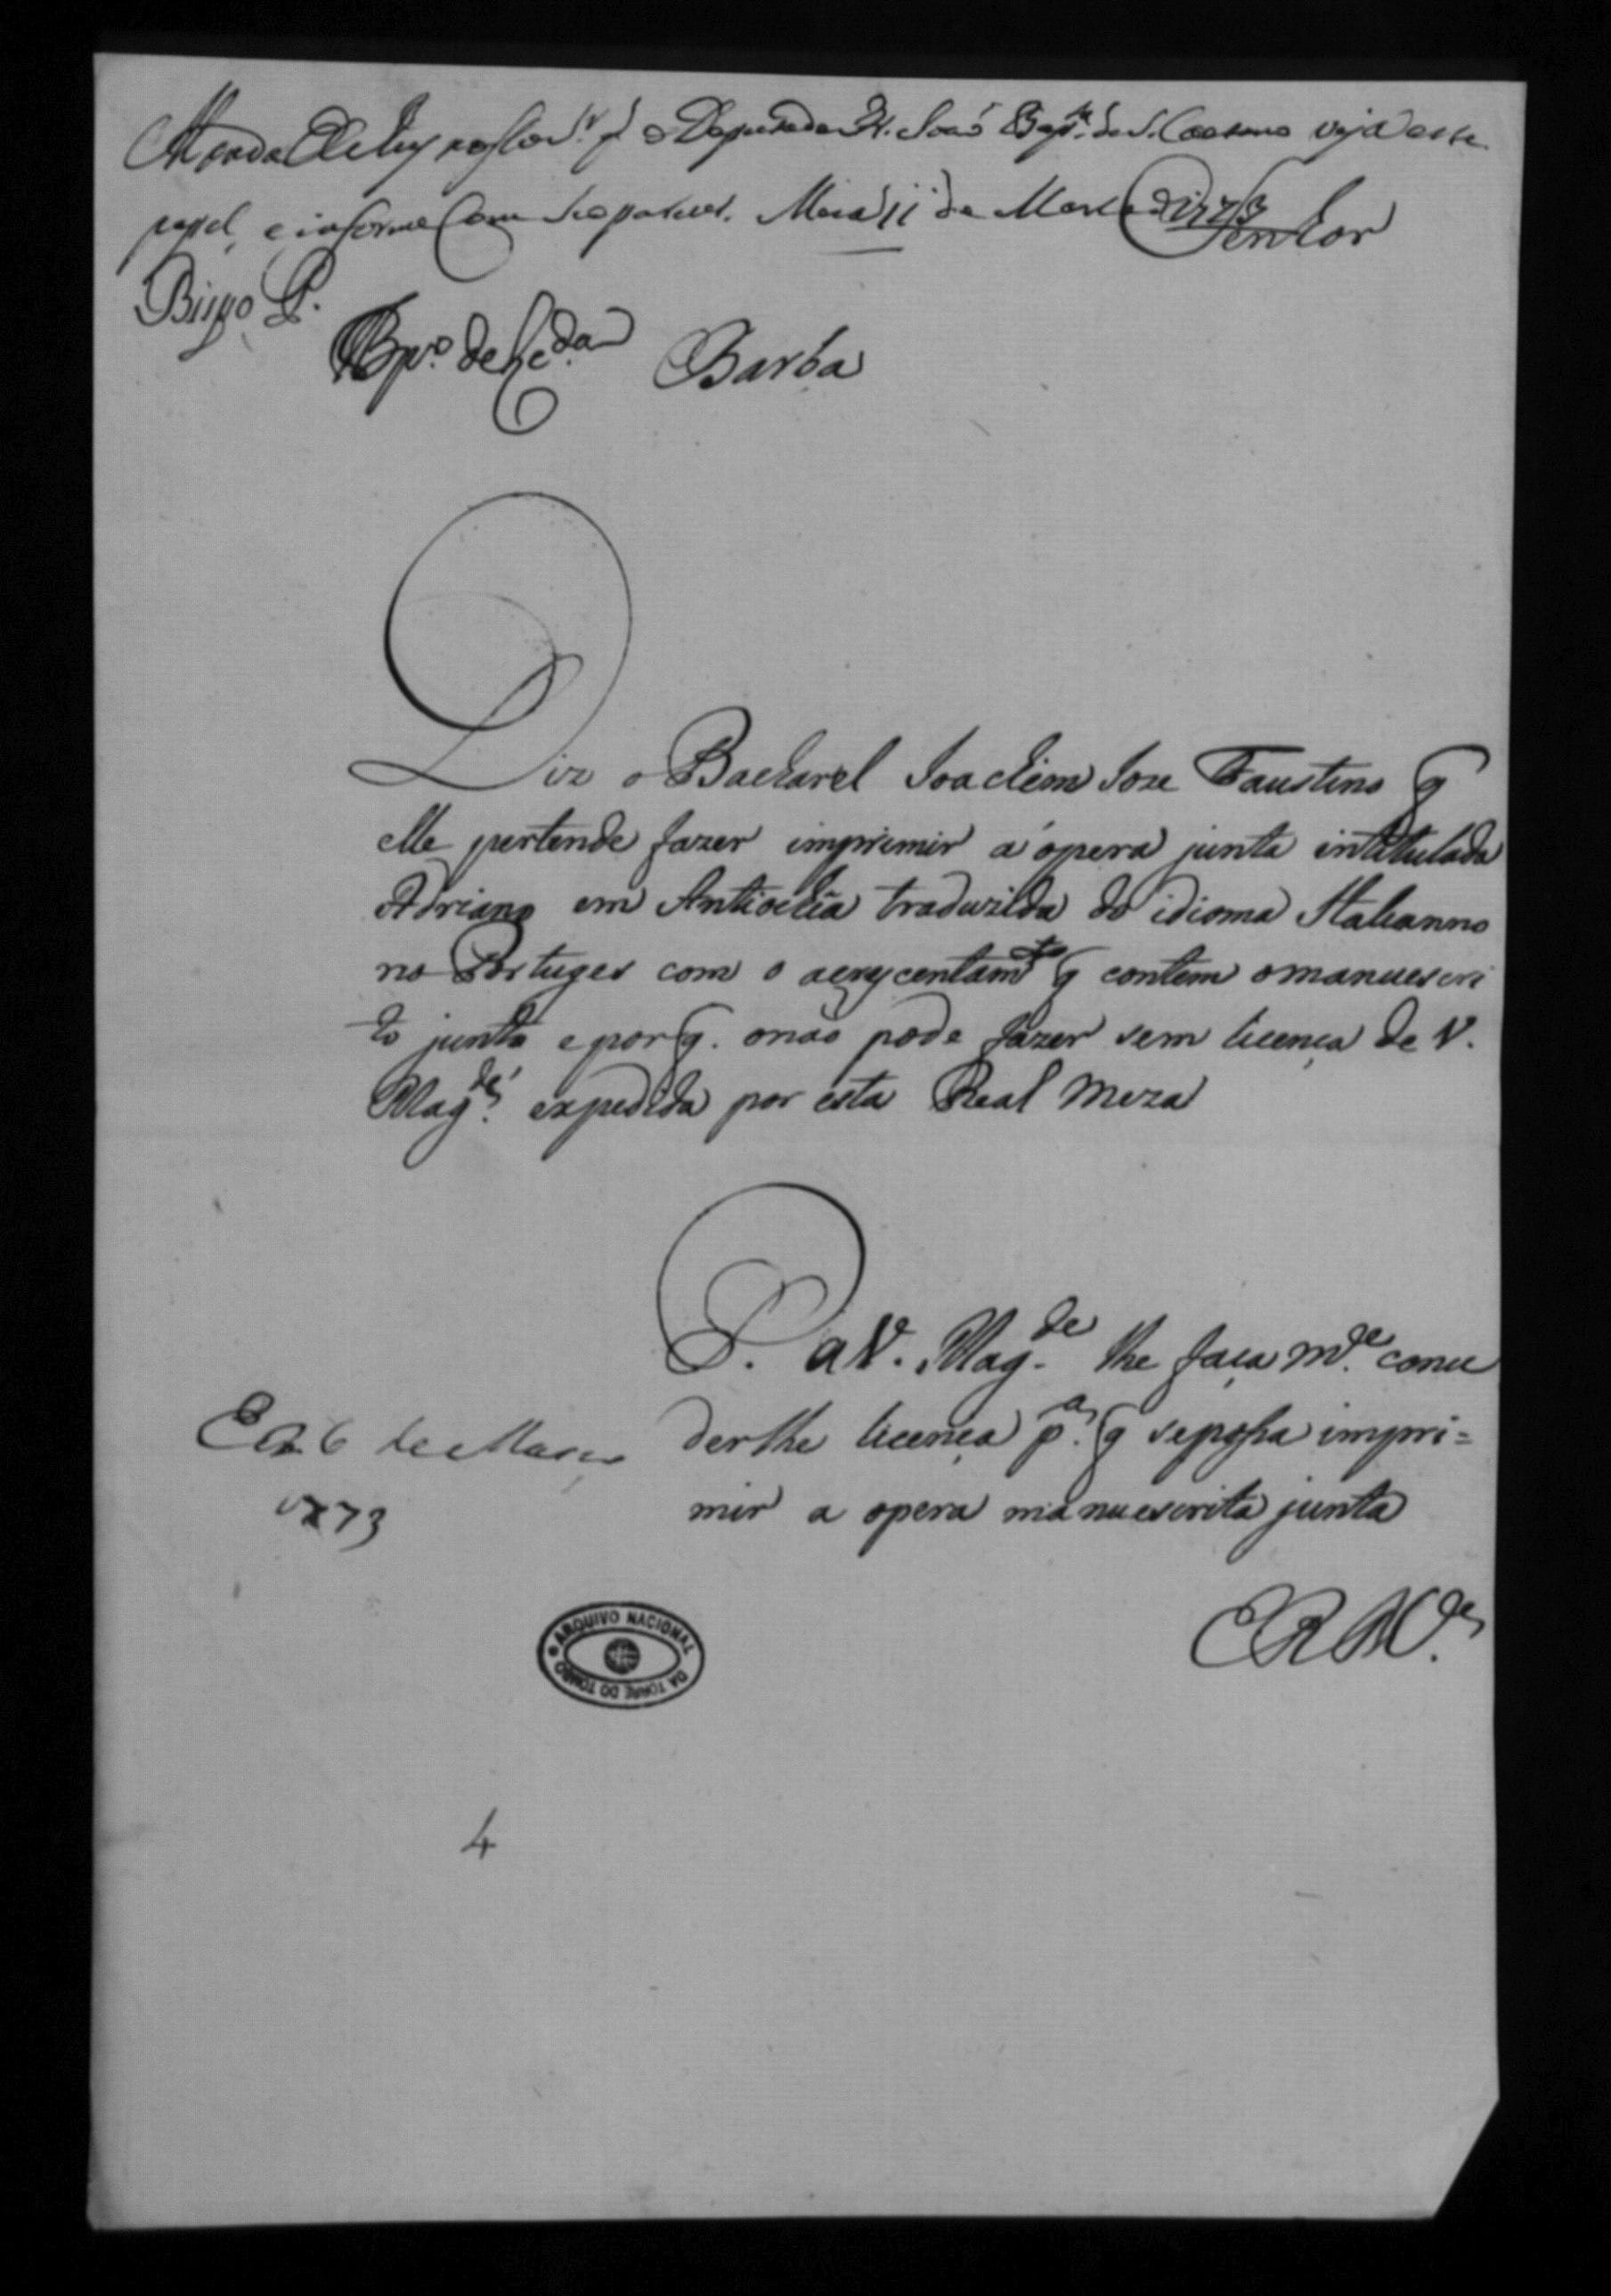 Manda ElRey nosso Sr. q o Deputado Fr. João Bapta. de S. Caetano veja este
papel, e informe com seo parecer. Meza 11 de Março de 1773
Senhor
Bispo P.
Barba
Diz o Bacharel Joachim Joze Faustino q
elle pertende fazer imprimir a ópera junta intitulada
Adriano em Antiochia traduzida do idioma Italianno
no Portuges com o acrycentamto q contem o manuescri
to junto e por q. o não pode fazer sem licença de V.
Magde. expedida por esta Real Meza
P. a V. Magde. lhe faça me. conce
derlhe licença pa. q se possa impri=
mir a opera manuescrita junta
E a 6 de Março
1773
E R Mce.
ARQUIVO NACIONAL DA TORRE DO TOMBO
4